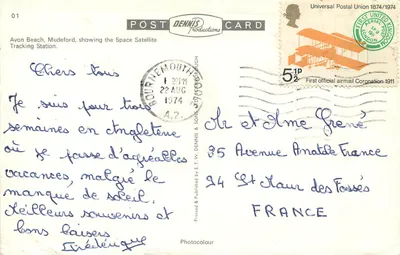 01
POST DENNIS Productions CARD
Avon Beach, Mudeford, showing the Space Satellite
Tracking Station.
Chers tous
Je suis pour trois
semaines en Angleterre
où je passe d'agréables
vacances, malgré le
manque de soleil.
Meilleurs souvenirs et
bons baisers
Frédérique
Printed & Published by E.T.W. DENNIS &
Photocolour
BOURNEMOUTH-POOLE
22 AUG
1974
Universal Postal Union 1874/1974
FIRST UNITED KINGDOM AERIAL POST
5½P
First official airmail Coronation 1911
Mr et Mme Grené
35 Avenue Anatole France
94 St Maur des Fossés
FRANCE